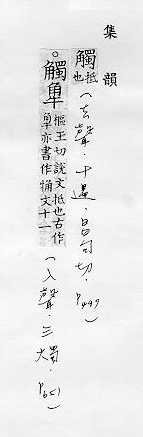 集韻
觸 抵也 (去聲．十遇．昌句切．P497)
○觸 樞玉切說文抵也古作
亦書作 文十一
(入聲．三燭．P651)